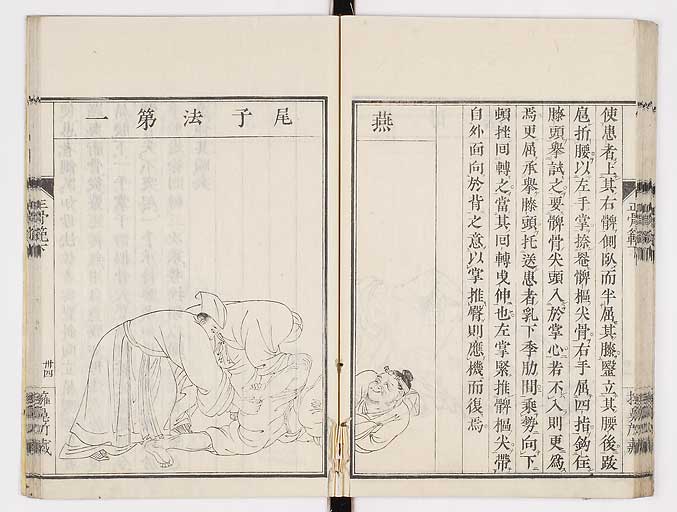 使患者上其右髀側臥而半屈其膝竪立其腰後跋
扈折腰以左手掌捺髀樞尖骨右手屈四指鈎住
膝頭擧試之要髀骨尖頭入於掌心若不入則更爲
焉更屈承擧膝頭托送患者乳下季肋間乘勢向下
頓挫回轉之當其回轉曳伸也左掌緊推髀樞尖帶
自外面向於背之意以掌推臀則應機而復焉
燕
尾子法第一
正骨範下
卅四